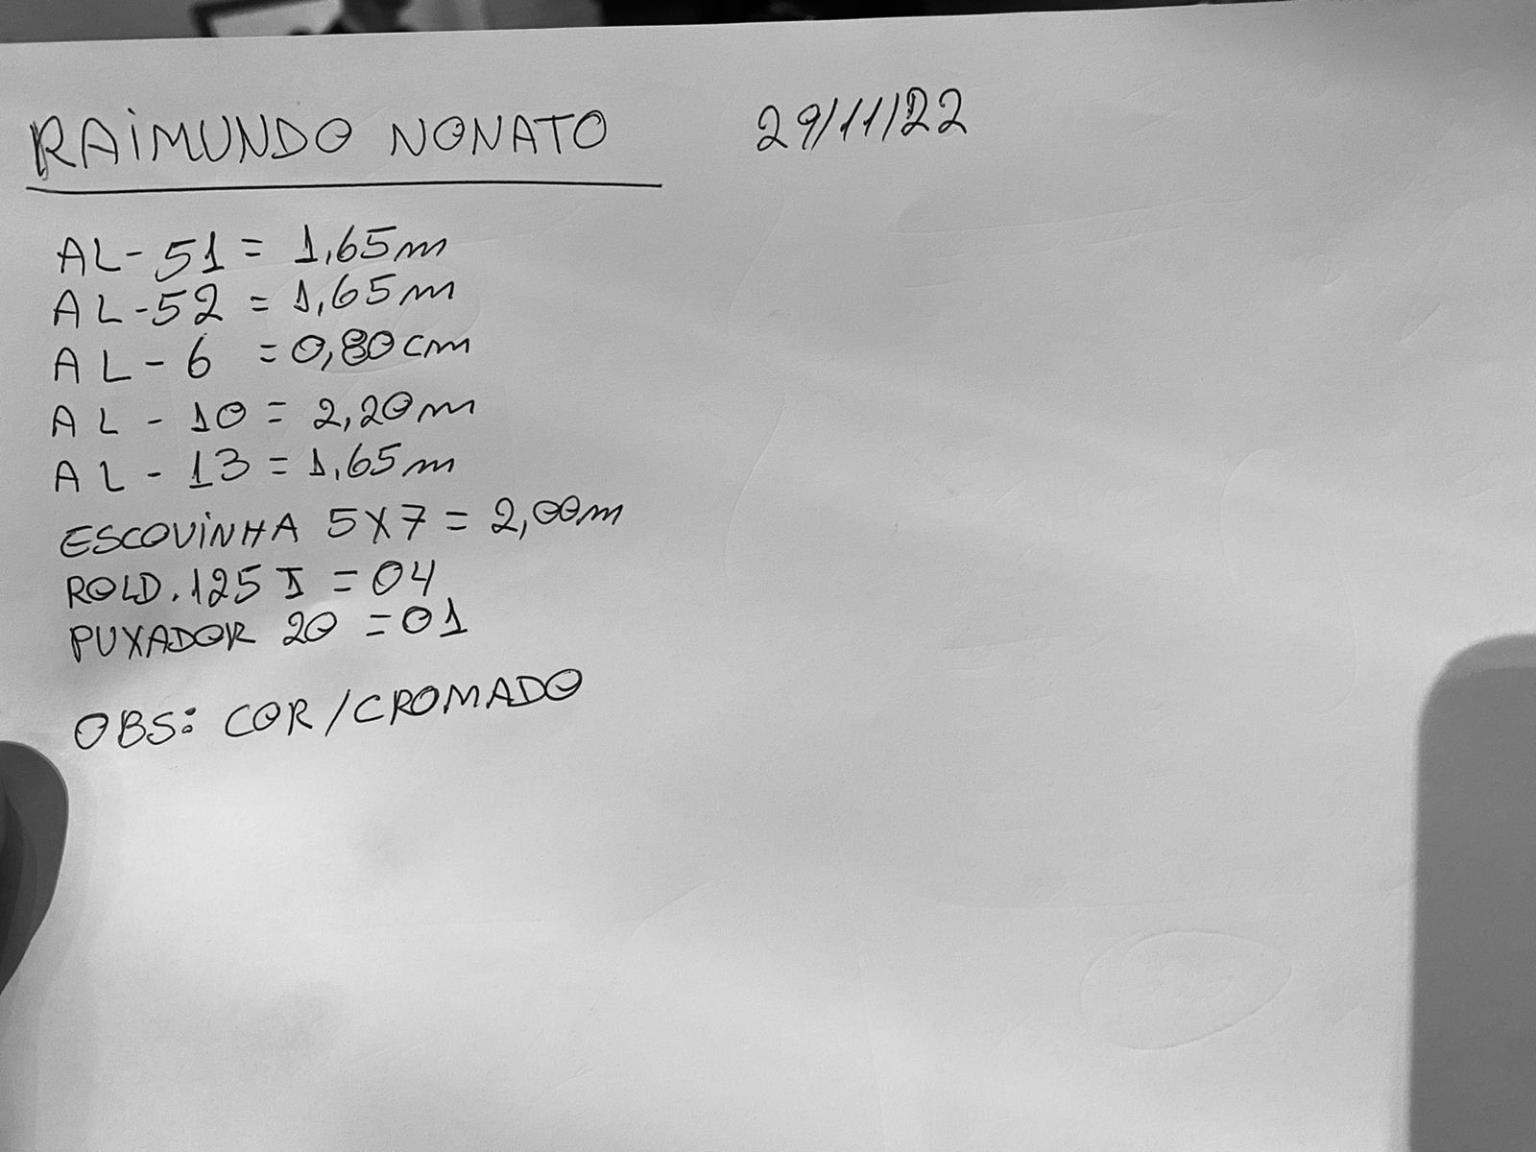 RAiMUNDO NONATO 29/11/22
AL-51 = 1,65m
AL-52 = 1,65m
AL-6 = 0,80cm
AL-10 = 2,20m
AL-13 = 1,65m
ESCOViNHA 5X7 = 2,00m
ROLD.125 I = 04
PUXADOR 20 = 01
OBS: COR/CROMADO